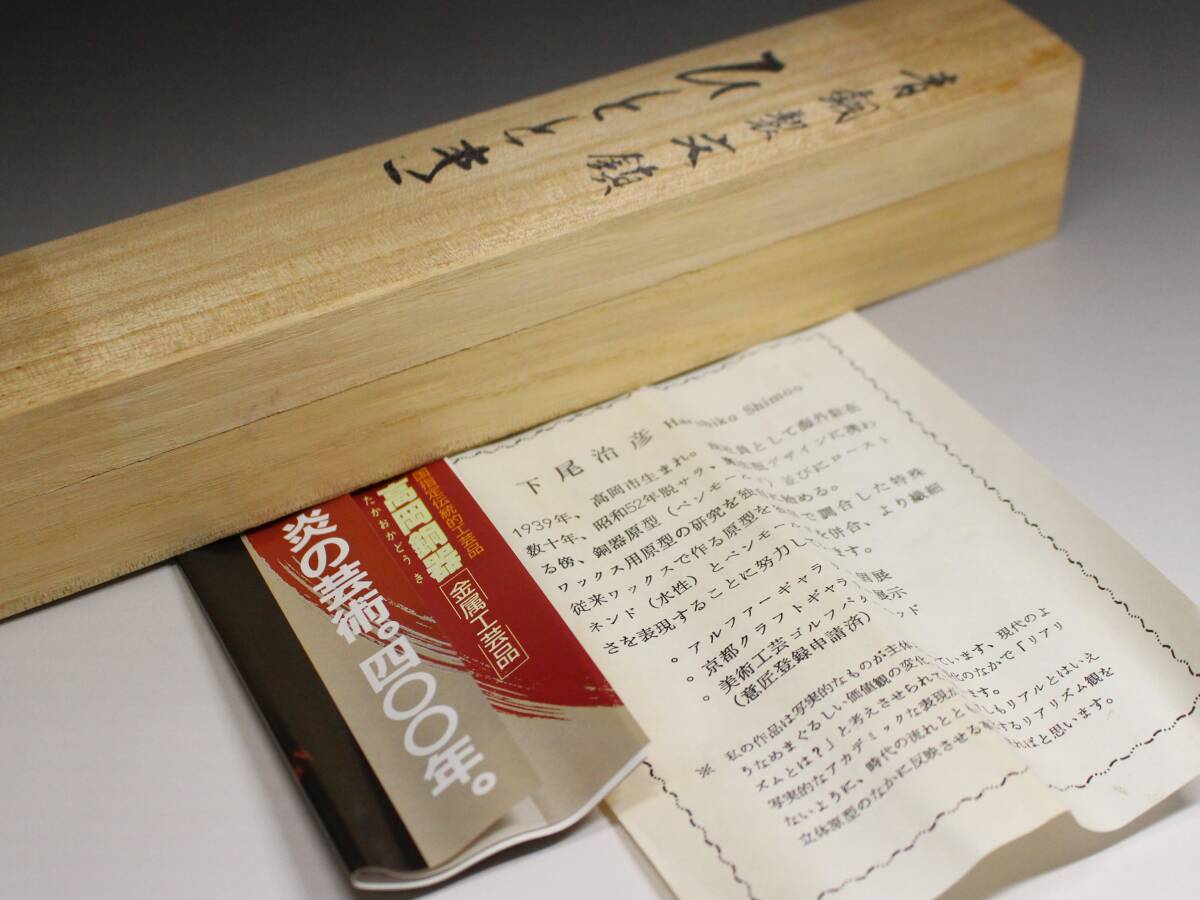 青銅製文鎮
ひととき
国指定伝統的工芸品
高岡銅器
たかおかどうき
金属工芸品
炎の芸術。四〇〇年。
下尾治彦 Haruhiko Shimoo
1939年、高岡市生まれ。
数十年、昭和52年脱サラ、
員として海外駐在
る傍、銅器原型(ペンモー
デザインに携わ
ワックス用原型の研究を独
並びにロースト
始める。
従来ワックスで作る原型を
で調合した特殊
ネンド(水性)とペンモー
と併合、より繊細
さを表現することに努力し
ます。
。アルファーギャラ
個展
。京都クラフトギャラ
展示
。美術工芸ゴルフパ
ッド
(意匠登録申請済)
※ 私の作品は写実的なものが主体
ています、現代のよ
うなめまぐるしい価値観の変化
のなかで「リアリ
ズムとは?」と考えさせられて
ます。
写実的なアカデミックな表現
しもリアルとはいえ
ないように、時代の流れととも
するリアリズム観を
立体原型のなかに反映させる
ればと思います。